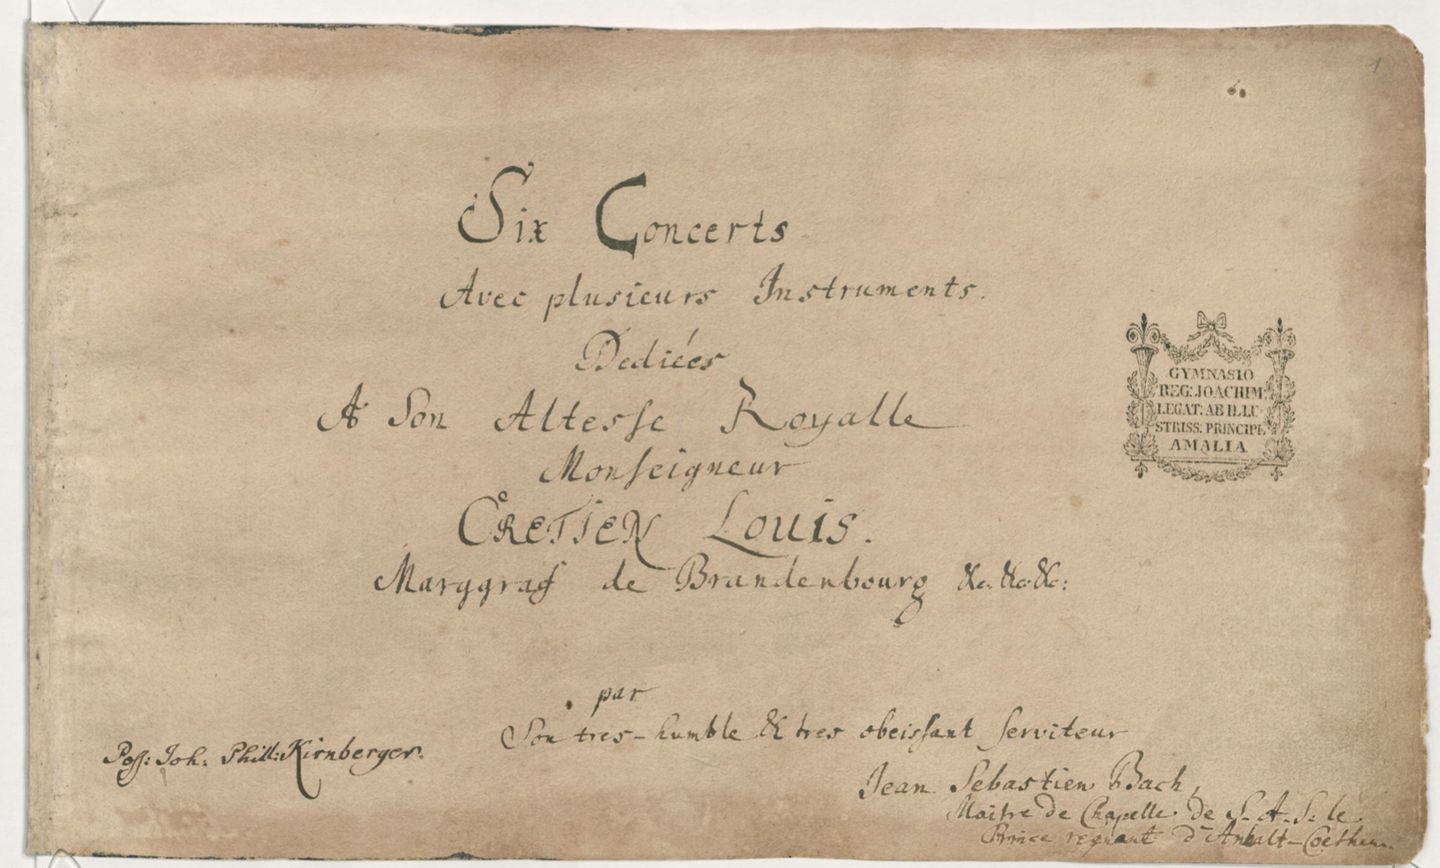 1
Six Concerts
Avec plusieurs Instruments.
Dediées
A Son Altesse Royalle
Monseigneur
CRETIEN LOUIS.
Marggraf de Brandenbourg &c. &c. &c:
GYMNASIO
REG: JOACHIM:
LEGAT: AB ILLU-
STRISS: PRINCIPE
AMALIA
par
Son tres-humble & tres obeissant serviteur
Jean Sebastien Bach,
Maitre de Chapelle de S. A. S. le
Prince regnant d'Anhalt-Coethen.
Poss: Joh: Phill: Kirnberger.